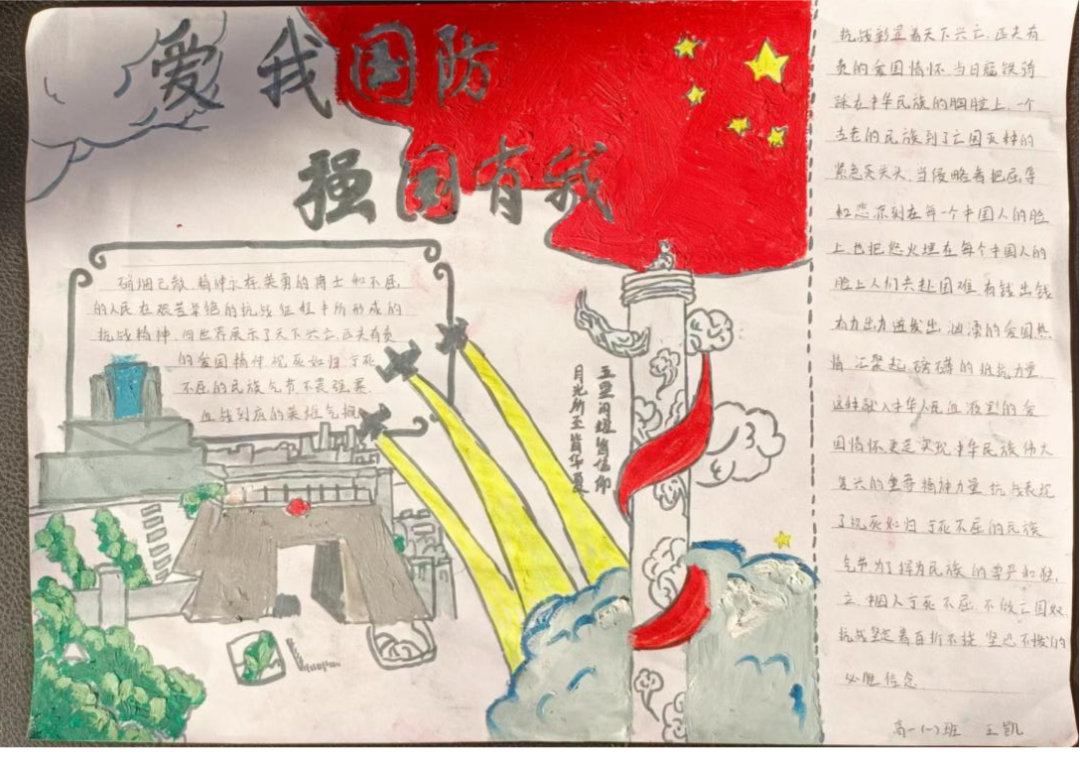 爱我国防
强国有我
硝烟已散,精神永存,英勇的将士和不屈
的人民在艰苦卓绝的抗战征程中所形成的
抗战精神,向世界展示了天下兴亡,匹夫有负
的爱国精神,视死如归宁死
不屈的民族气节不畏强暴
血战到底的英雄气概
五星闪耀皆信仰
月光所至皆华夏
抗战彰显着天下兴亡,匹夫有
负的爱国情怀.当日寇铁蹄
踩在中华民族的胸膛上,一个
古老的民族到了亡国灭种的
紧急关头,当侵略者把屈辱
和悲哀刻在每一个中国人的脸
上,也把怒火埋在每个中国人的
脸上人们共赴国难,有钱出钱
有力出力迸发出,汹涌的爱国热
情,汇聚起,磅礴的抗抗力量
这种融入中华人民血液里的爱
国情怀更是实现中华民族伟大
复兴的重要精神力量,抗战表现
了视死如归,宁死不屈的民族
气节,为了捍为民族的尊严和独
立,中国人宁死不屈,不做亡国奴
抗战坚定着百折不挠,坚忍不拨的
必胜信念
高一(一)班 王凯